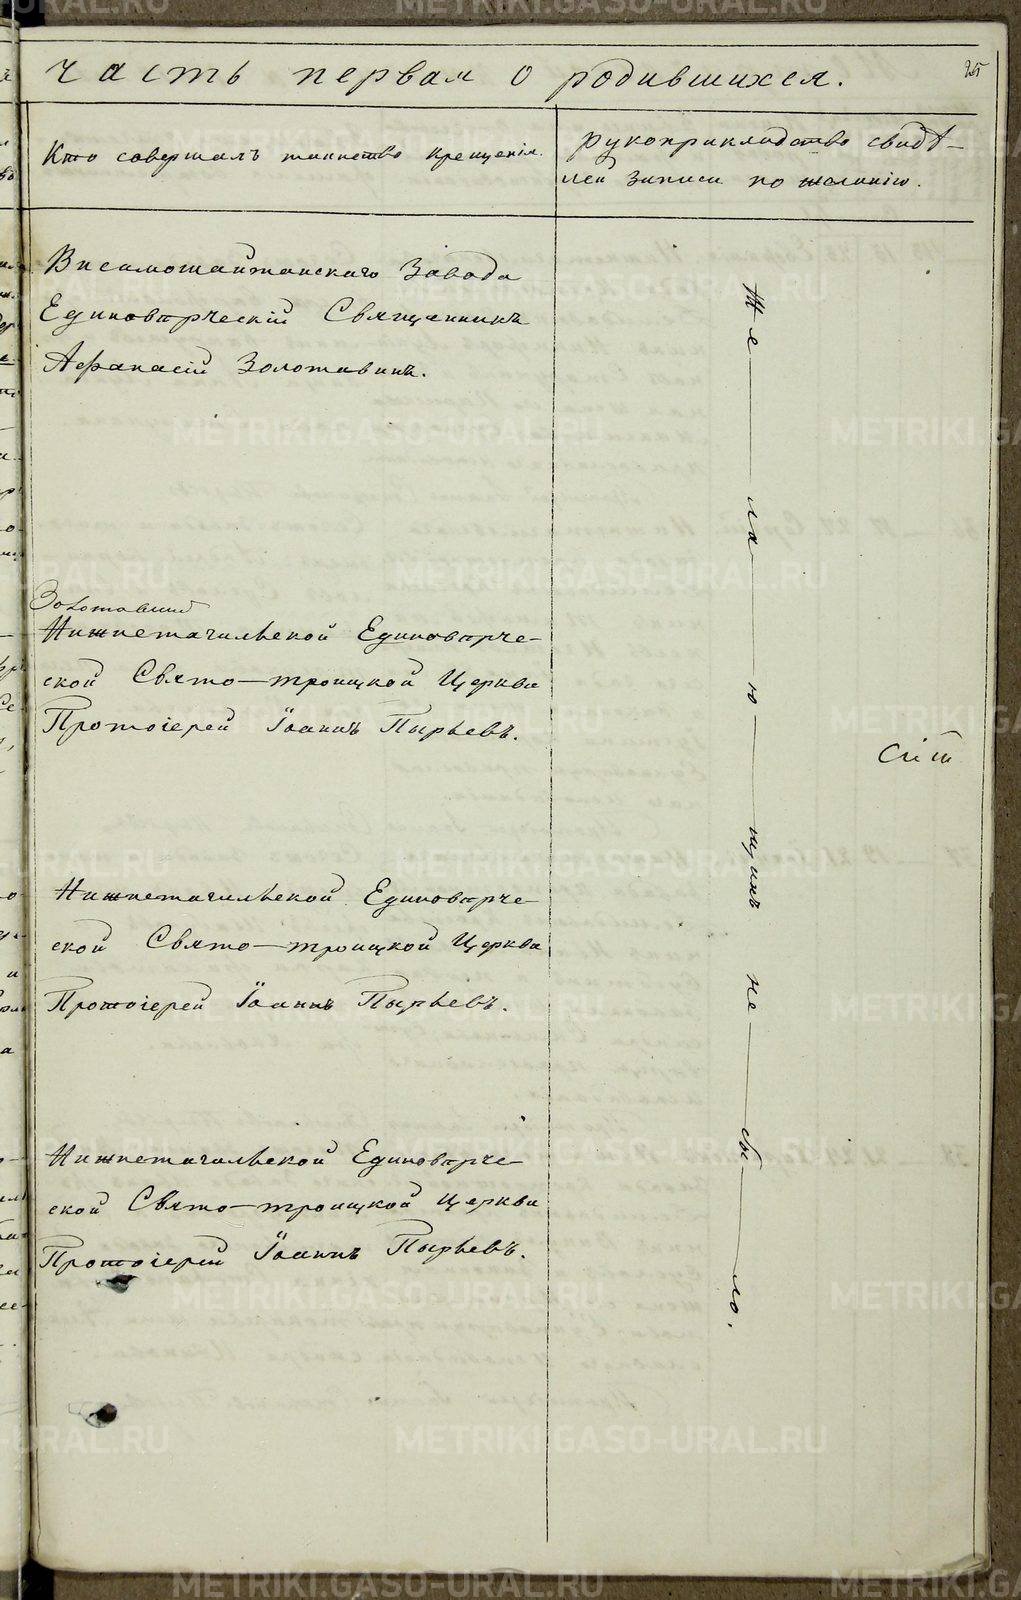 часть первая о родившихся.
25
Кто совершалъ таинство крещенія.
рукоприкладство свидѣ-
лей записи по желанію.
Висимошайтанскаго Завода
Единовѣрческій Священникъ
Аѳанасій Золотавинъ.
Золотавинъ
Нижнетагильской Единовѣрче-
ской Свято-троицкой Церкви
Протоіерей Іоаннъ Пырьевъ.
Нижнетагильской Единовѣрче-
ской Свято-троицкой Церкви
Протоіерей Іоаннъ Пырьевъ.
Нижнетагильской Единовѣрче-
ской Свято-троицкой Церкви
Протоіерей Іоаннъ Пырьевъ.
Же — ла — ю — щихъ не — бы — ло.
METRIKI.GASO-URAL.RU